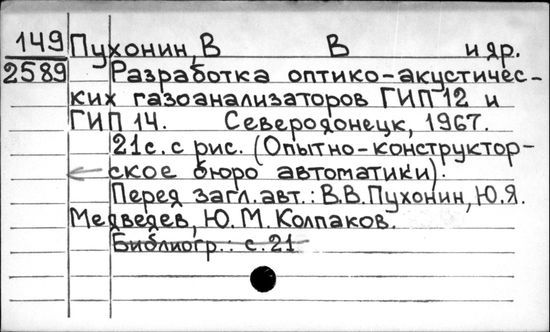 149 Пухонин, В В и др.
2589 Разработка оптико-акустичес-
ких газоанализаторов ГИП 12 и
ГИП 14. Северодонецк, 1967.
21с. с рис. (Опытно-конструктор-
ское бюро автоматики).
Перед загл. авт.: В.В.Пухонин, Ю.Я.
Медведев, Ю.М.Колпаков.
Библиогр.: с.21